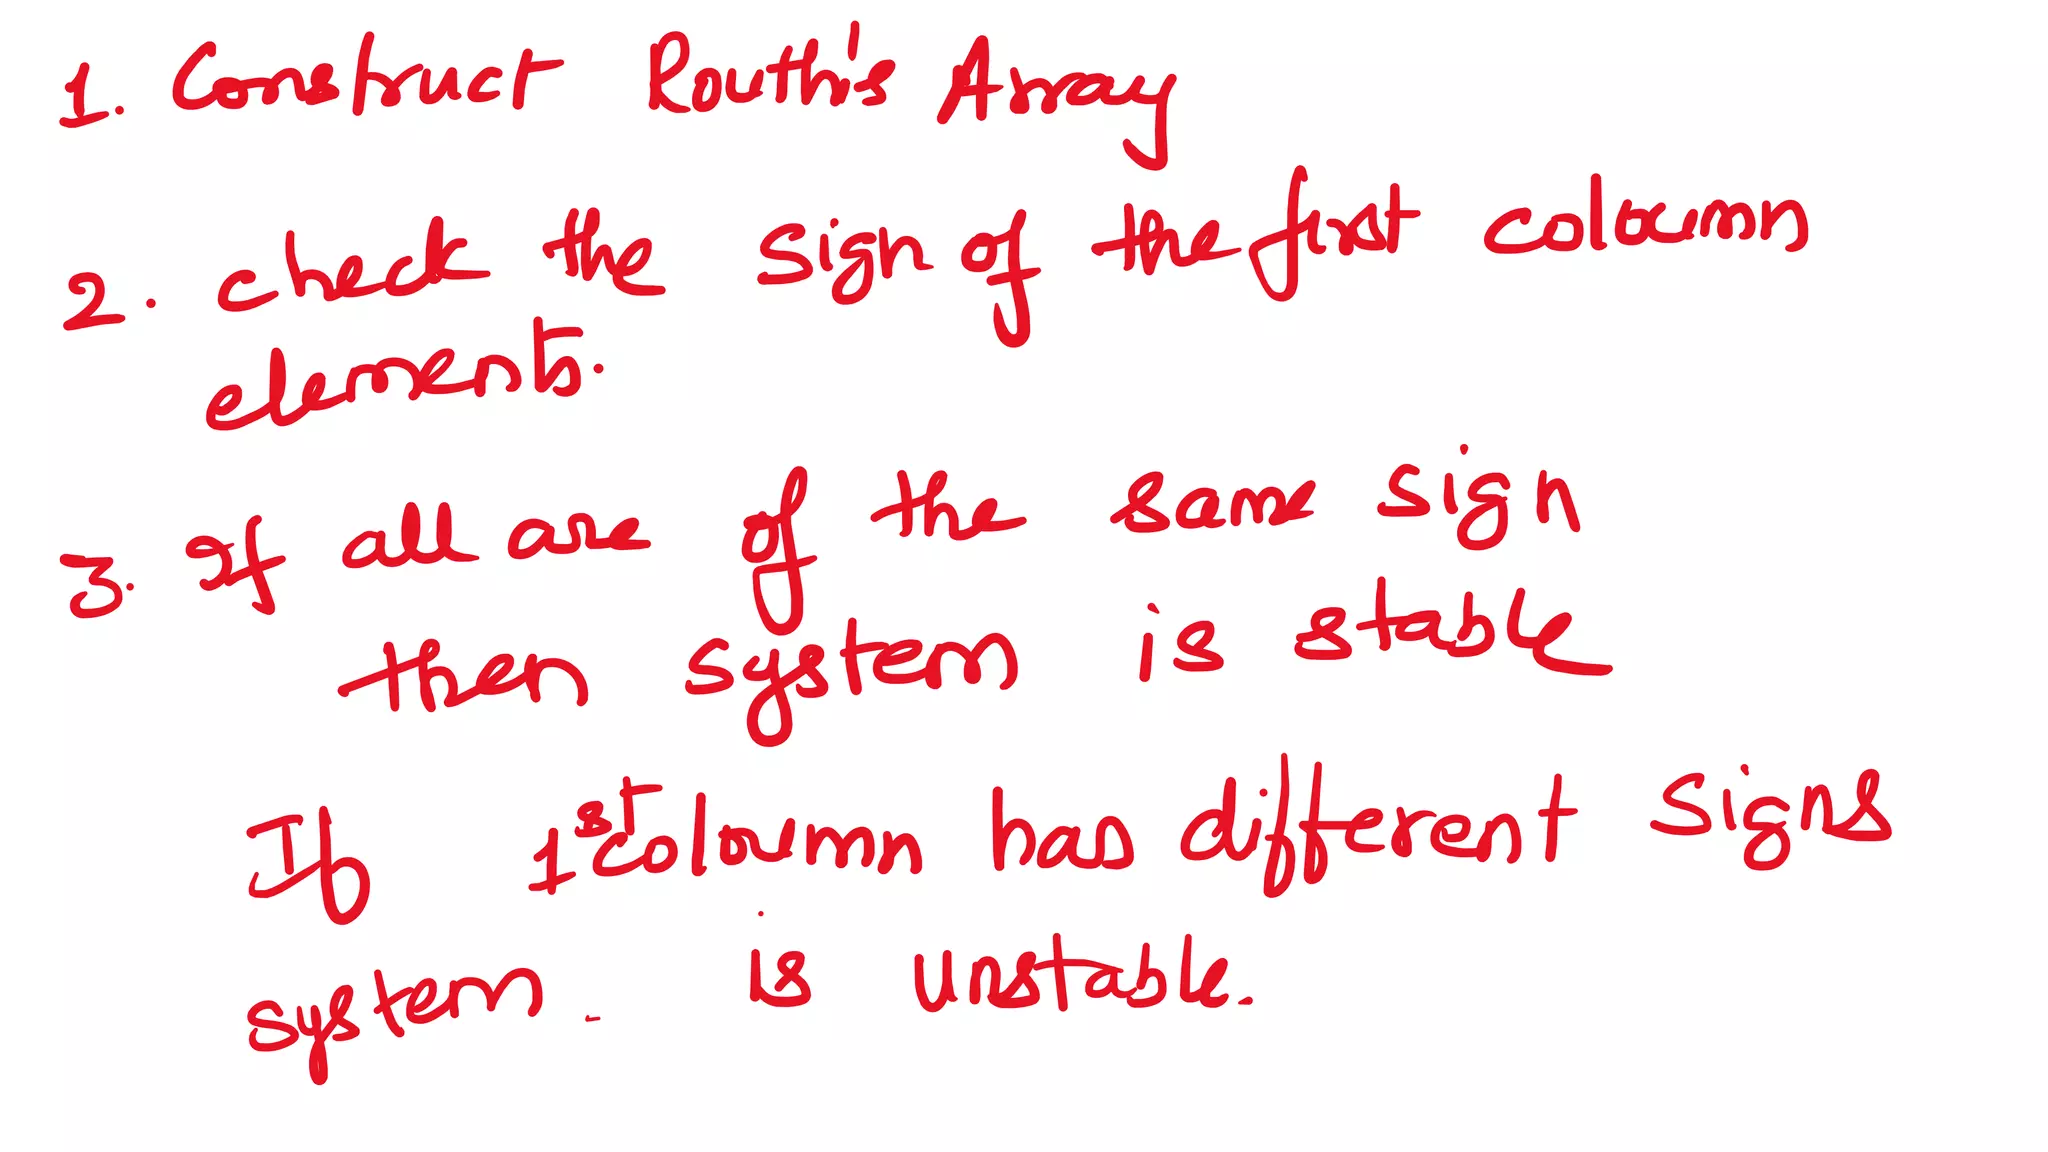 1. Construct Routh's Array
2. check the sign of the first coloumn
elements.
3. If all are of the same sign
then system is stable
If 1st coloumn has different signs
system. is unstable.